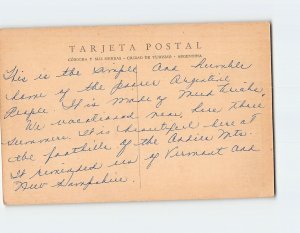 TARJETA POSTAL
CÓRDOBA Y SUS SIERRAS - CIUDAD DE TURISMO - ARGENTINA
This is the simple and humble
home of the poorer Argentine
People. It is made of Mud bricks.
We vacationed near here three
Summers. It is beautiful here at
the foothills of the Andies Mts.
It reminded us of Vermont and
New Hampshire.